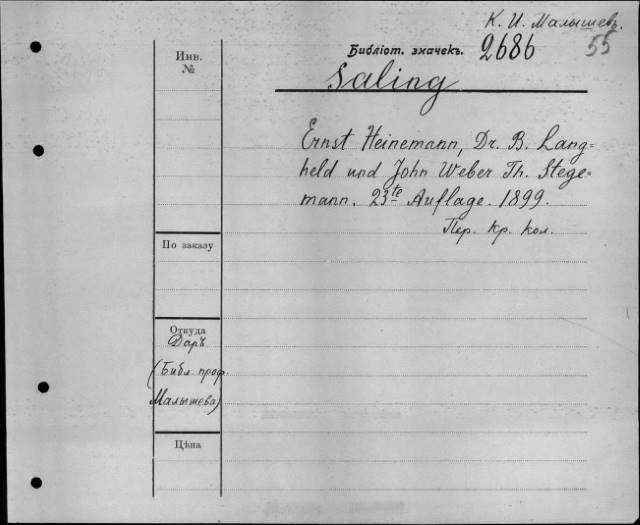 К. И. Малышевъ.
Инв.
№
Библіот. значекъ. 2686 55
Saling
Ernst Heinemann, Dr. B. Lang=
held und John Weber Th. Stege=
mann. 23te Auflage. 1899.
Пер. Кр. кол.
По заказу
Откуда
Даръ
(Библ. проф.
Малышева)
Цѣна